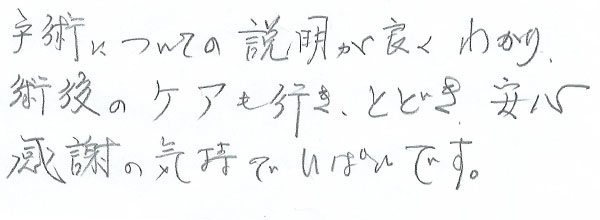 手術についての説明が良くわかり、
術後のケアも行き、とどき、安心
感謝の気持でいっぱいです。